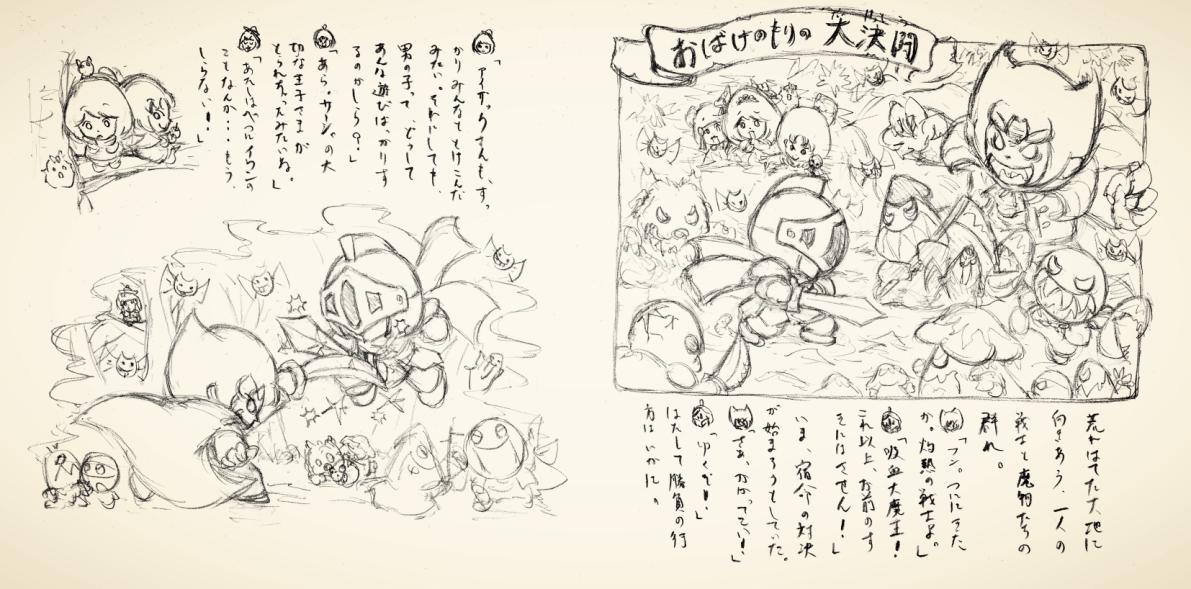 おばけのもりの 大決闘
荒れはてた大地に
向きあう、一人の
戦士と魔物たちの
群れ。
「フン。ついにきた
か。灼熱の戦士よ。」
「吸血大魔王!
これ以上、お前のす
きにはさせん!」
いま、宿命の対決
が始まろうとしていた。
「さあ、かかってこい!」
「ゆくぞ!」
はたして勝負の行
方はいかに。
「アイザックさんも、すっ
かりみんなととけこんだ
みたい。それにしても、
男の子って、どうして
あんな遊びばっかりす
るのかしら?」
「あら。サーシャの大
切な王子さまが
とられちゃったみたいね。」
「あたしはべつにイワンの
ことなんか・・・もう、
しらない!」